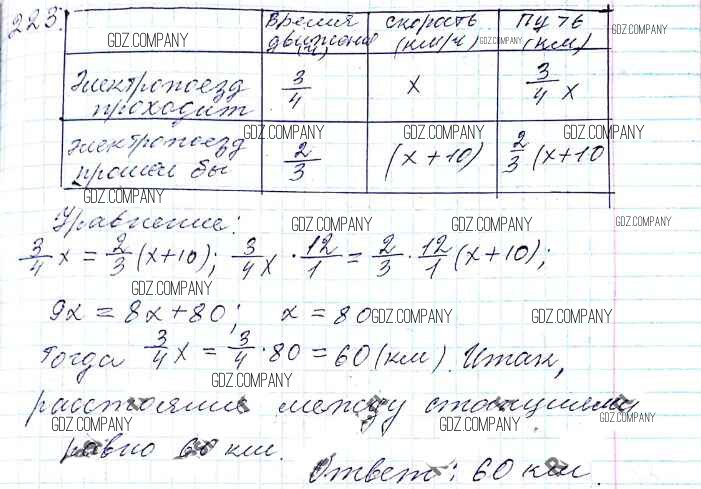 223.
Время движения (ч) | скорость (км/ч) | Путь (км)
GDZ.COMPANY GDZ.COMPANY GDZ.COMPANY
Электропоезд проходит | 3/4 | x | 3/4 x
GDZ.COMPANY GDZ.COMPANY GDZ.COMPANY
Электропоезд прошел бы | 2/3 | (x+10) | 2/3 (x+10
GDZ.COMPANY
Уравнение:
GDZ.COMPANY GDZ.COMPANY GDZ.COMPANY
3/4 x = 2/3 (x+10); 3/4 x · 12/1 = 2/3 · 12/1 (x+10);
GDZ.COMPANY
9x = 8x+80; x = 80
GDZ.COMPANY GDZ.COMPANY
Тогда 3/4 x = 3/4 · 80 = 60 (км). Итак,
GDZ.COMPANY
расстояние между станциями
GDZ.COMPANY GDZ.COMPANY GDZ.COMPANY
равно 60 км.
Ответ: 60 км.